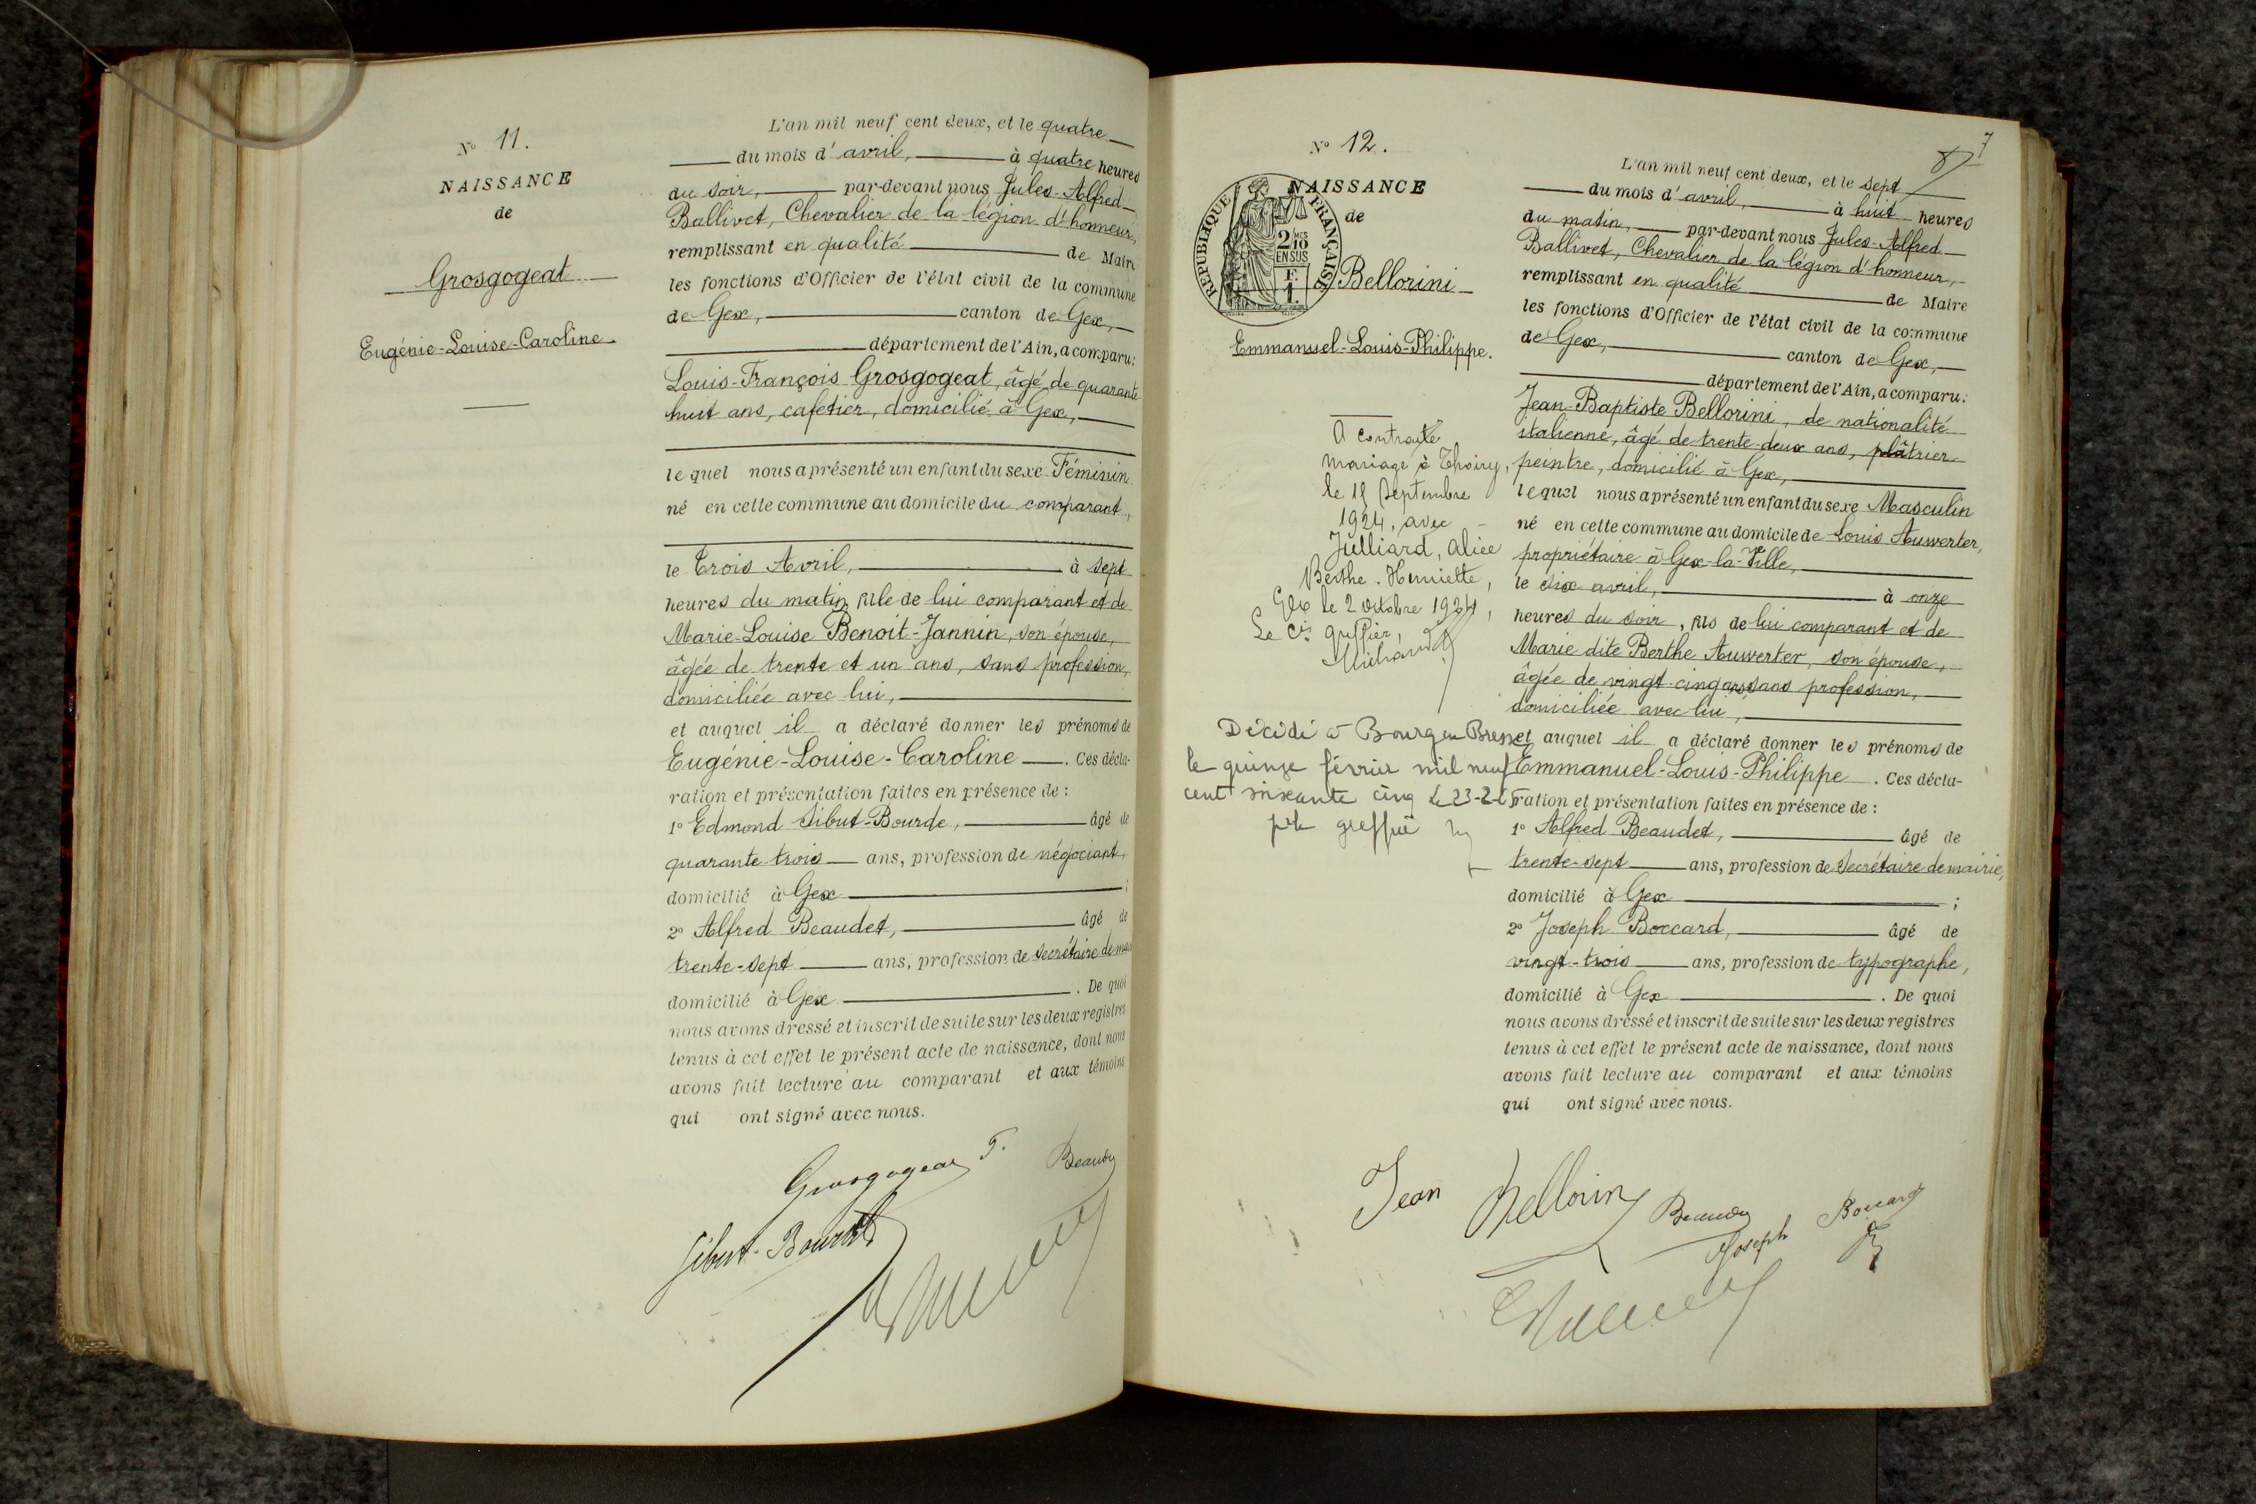 N° 11.
NAISSANCE
de
Grosgogeat
Eugénie-Louise-Caroline
L'an mil neuf cent deux, et le quatre
du mois d'avril, à quatre heures
du soir, par-devant nous Jules-Alfred
Ballivet, Chevalier de la légion d'honneur,
remplissant en qualité de Maire
les fonctions d'Officier de l'état civil de la commune
de Gex, canton de Gex,
département de l'Ain, a comparu:
Louis-François Grosgogeat, âgé de quarante
huit ans, cafetier, domicilié à Gex,
lequel nous a présenté un enfant du sexe Féminin
né en cette commune au domicile du comparant,
le Trois Avril, à sept
heures du matin, fille de lui comparant et de
Marie-Louise Benoit-Jannin, son épouse,
âgée de trente et un ans, sans profession,
domiciliée avec lui,
et auquel il a déclaré donner les prénoms de
Eugénie-Louise-Caroline. Ces décla-
ration et présentation faites en présence de:
1° Edmond Sibut-Bourde, âgé de
quarante-trois ans, profession de négociant,
domicilié à Gex;
2° Alfred Beaudet, âgé de
trente-sept ans, profession de secrétaire de mai
domicilié à Gex. De quoi
nous avons dressé et inscrit de suite sur les deux registres
tenus à cet effet le présent acte de naissance, dont nous
avons fait lecture au comparant et aux témoins
qui ont signé avec nous.
Grosgogeat F. Beaudet
Sibut-Bourde
7
N° 12.
NAISSANCE
de
RÉPUBLIQUE FRANÇAISE
2/10 MES
EN SUS
F.
1.
Bellorini
Emmanuel-Louis-Philippe.
A contracté
mariage à Thoiry,
le 18 septembre
1924, avec
Julliard, Alice
Berthe Henriette,
Gex le 2 octobre 1924,
Le Cis greffier,
Michaud
Décédé à Bourg en Bresse
le quinze février mil neuf
cent soixante cinq Le 23-2-65
greffier
L'an mil neuf cent deux, et le sept
du mois d'avril, à huit heures
du matin, par-devant nous Jules-Alfred
Ballivet, Chevalier de la légion d'honneur,
remplissant en qualité de Maire
les fonctions d'Officier de l'état civil de la commune
de Gex, canton de Gex,
département de l'Ain, a comparu:
Jean-Baptiste Bellorini, de nationalité
italienne, âgé de trente-deux ans, plâtrier
peintre, domicilié à Gex,
lequel nous a présenté un enfant du sexe Masculin
né en cette commune au domicile de Louis Auwerter,
propriétaire à Gex-la-Ville,
le six avril, à onze
heures du soir, fils de lui comparant et de
Marie dite Berthe Auwerter, son épouse,
âgée de vingt-cinq ans, sans profession,
domiciliée avec lui,
et auquel il a déclaré donner les prénoms de
Emmanuel-Louis-Philippe. Ces décla-
ration et présentation faites en présence de:
1° Alfred Beaudet, âgé de
trente-sept ans, profession de secrétaire de mairie,
domicilié à Gex;
2° Joseph Boccard, âgé de
vingt-trois ans, profession de typographe,
domicilié à Gex. De quoi
nous avons dressé et inscrit de suite sur les deux registres
tenus à cet effet le présent acte de naissance, dont nous
avons fait lecture au comparant et aux témoins
qui ont signé avec nous.
Jean Bellorini Beaudet Joseph Boccard